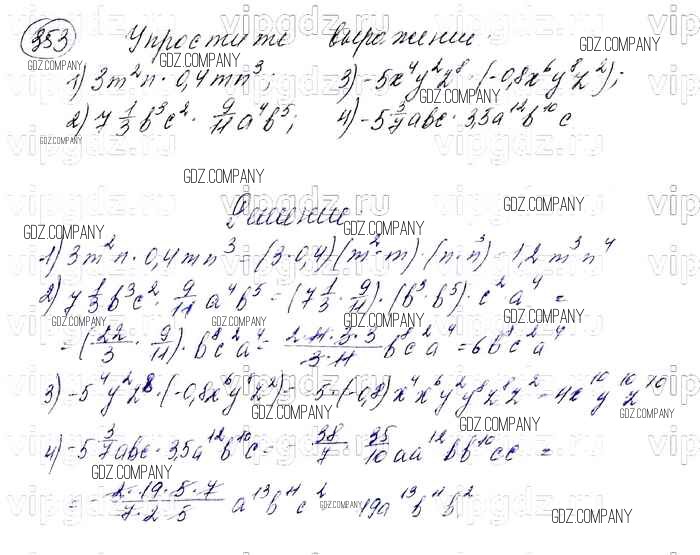 353 Упростите выражение.
1) 3m²n · 0,4mn³; 3) -5x⁴y²z⁸ · (-0,8x⁶y⁸z²);
2) 7 1/3 b³c² · 9/11 a⁴b⁵; 4) -5 3/7 abc · 3,5a¹²b¹⁰c
Решение
1) 3m²n · 0,4mn³ = (3·0,4)(m²·m)·(n·n³) = 1,2m³n⁴
2) 7 1/3 b³c² · 9/11 a⁴b⁵ = (7 1/3 · 9/11)·(b³·b⁵)·c²a⁴ =
= (22/3 · 9/11)·b⁸c²a⁴ = 2·11·3·3/3·11 b⁸c²a⁴ = 6b⁸c²a⁴
3) -5⁴y²z8·(-0,8x⁶y⁸z²) = -5·(-0,8)x⁴x⁶y²y⁸z⁸z² = 4x¹⁰y¹⁰z¹⁰
4) -5 3/7 abc · 3,5a¹²b¹⁰c = - 38/7 · 35/10 aa¹²bb¹⁰cc =
= - 2·19·5·7/7·2·5 a¹³b¹¹c² 19a¹³b¹¹b²